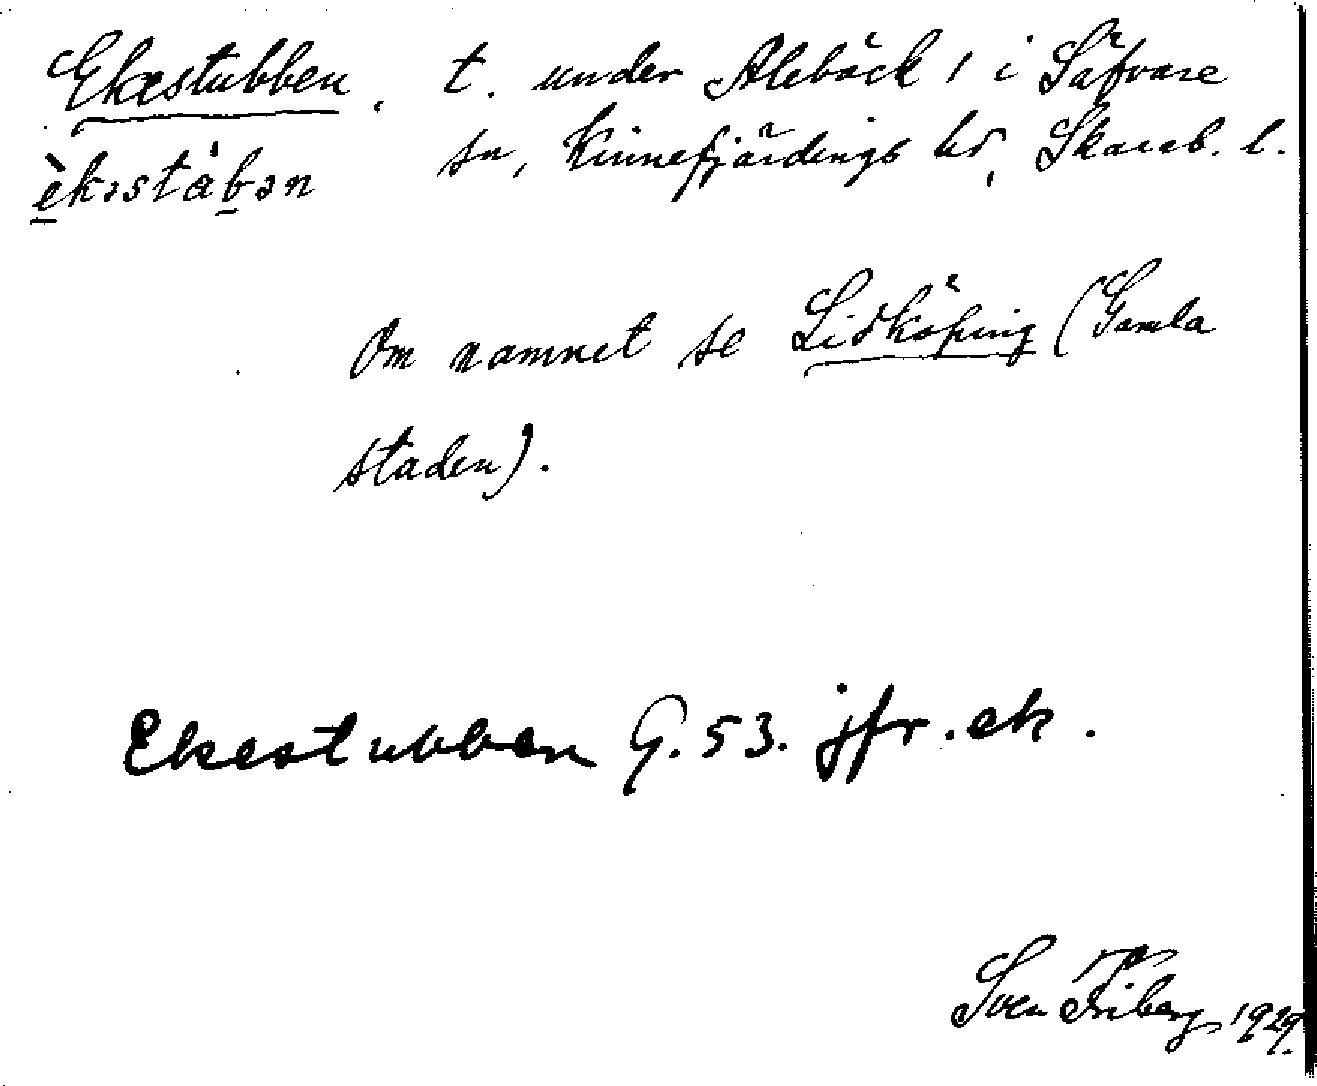 Ekestubben. t. under Alebäck 1 i Säfvare
èkəstàbən sn, Kinnefjärdings hd, Skarab. l.
Om namnet se Lidköping (Gamla
staden).
Ekestubben G. 53. jfr. ek.
Sven Friberg 1929.